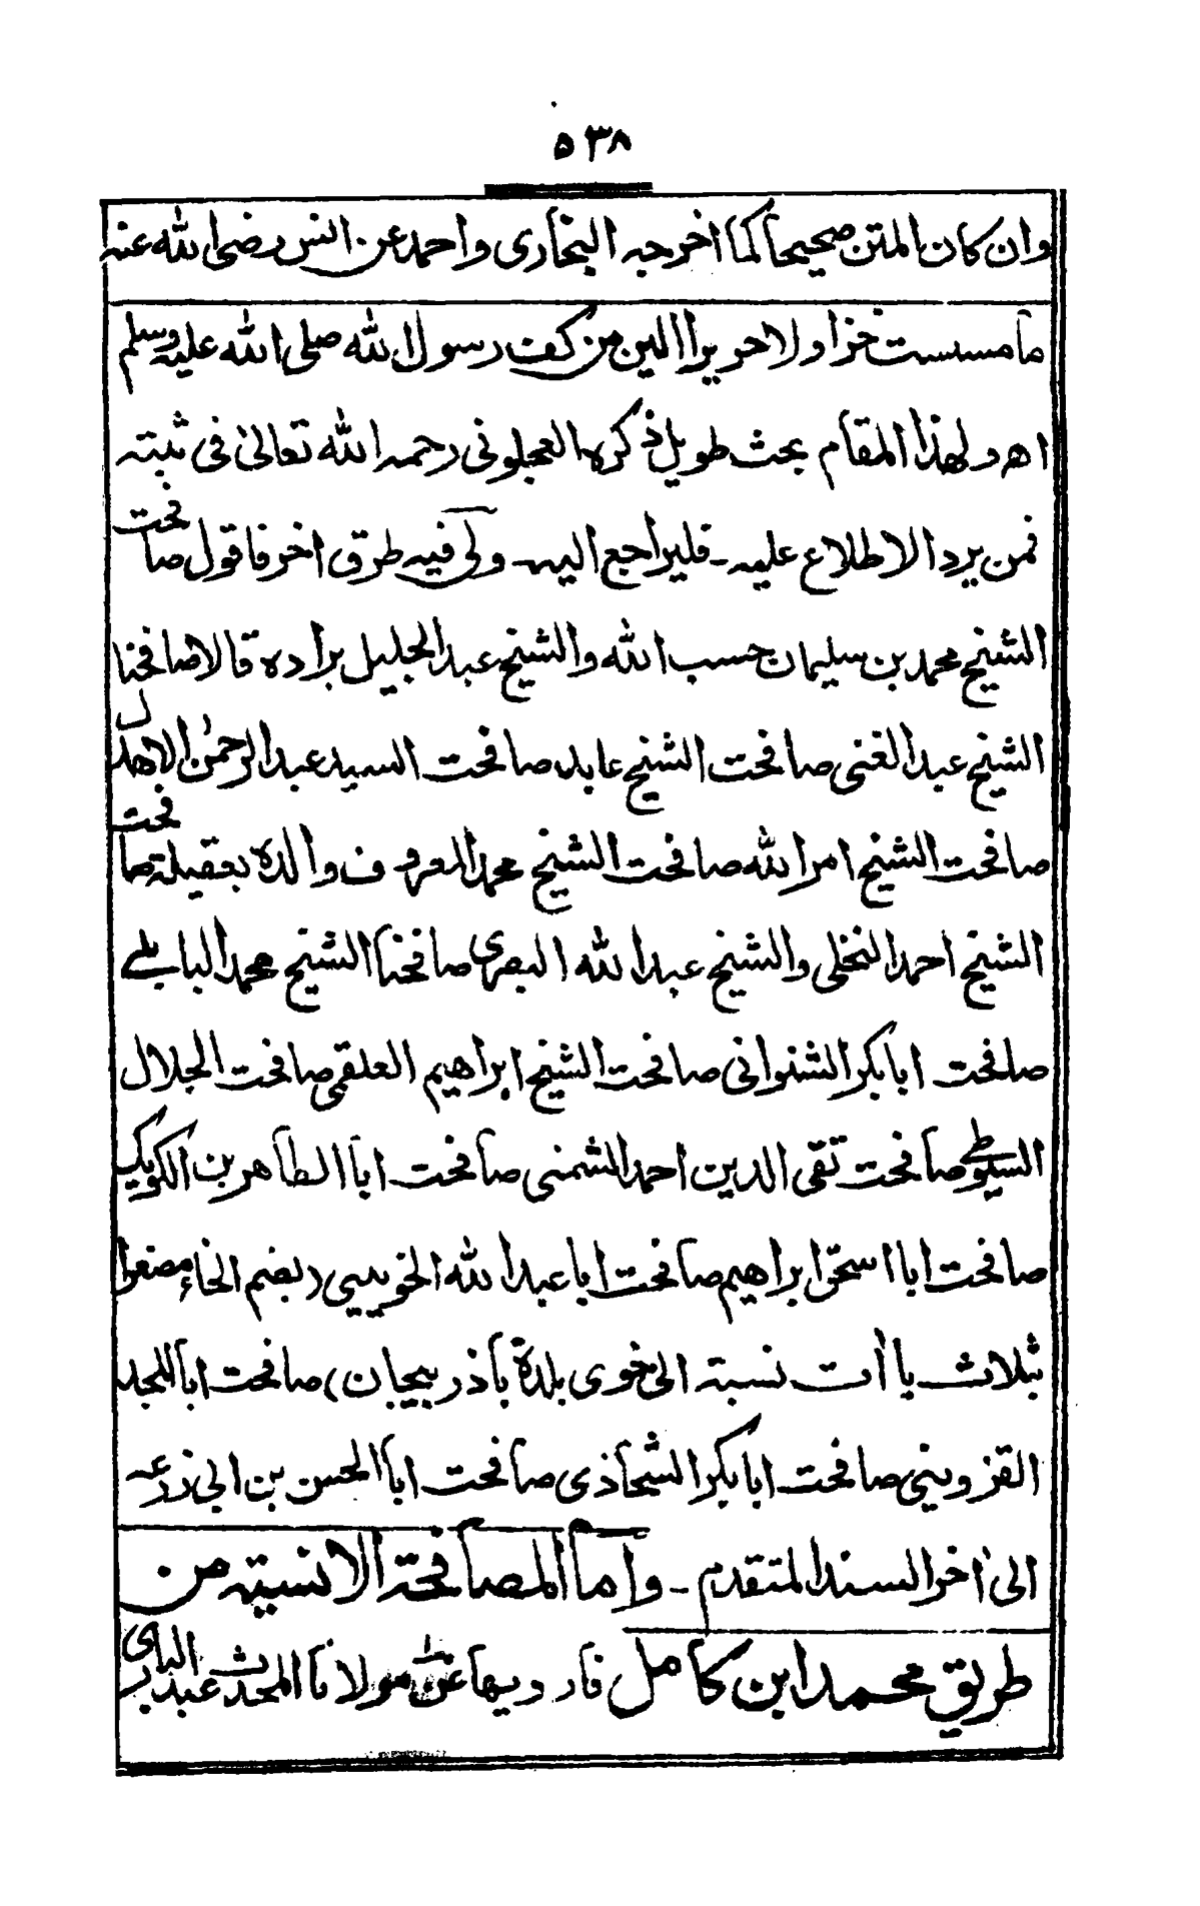 ٥٣٨
وان كان المتن صحيحا كما اخرجه البخارى واحمد عن انس رضى الله عنه
ما مسست خزا ولا حريرا الين من كف رسول الله صلى الله عليه وسلم
اهـ ولهذا المقام بحث طويل ذكره العجلونى رحمه الله تعالىٰ فى ثبته
فمن يرد الاطلاع عليه - فليراجع اليه - ولى فيه طرق اخر فاقول صافحت
الشيخ محمد بن سليمان حسب الله والشيخ عبد الجليل براده قالا صافحنا
الشيخ عبد الغنى صافحت الشيخ عابد صافحت السيد عبد الرحمٰن الاهدل
صافحت الشيخ امر الله صافحت الشيخ محمد المعروف والده بعقيلة صافحت
الشيخ احمد النخلى والشيخ عبد الله البصرى صافحنا الشيخ محمد البابلے
صافحت ابا بكر الشنوانى صافحت الشيخ ابراهيم العلقمى صافحت الجلال
السيوطے صافحت تقى الدين احمد الشمنى صافحت ابا الطاهر بن الكويك
صافحت ابا اسحٰق ابراهيم صافحت ابا عبد الله الخوييى (بضم الخاء مصغرا
بثلاث يا أت نسبة الى خوى بلدة بأذربيجان) صافحت ابا المجد
القزوينى صافحت ابا بكر الشحاذى صافحت ابا الحسن بن ابى زرعه
الىٰ اخر السند المتقدم - واما المصافحة الانسيته من
طريق محمد ابن كامل فارويها عن مولانا المحدث عبد البارى